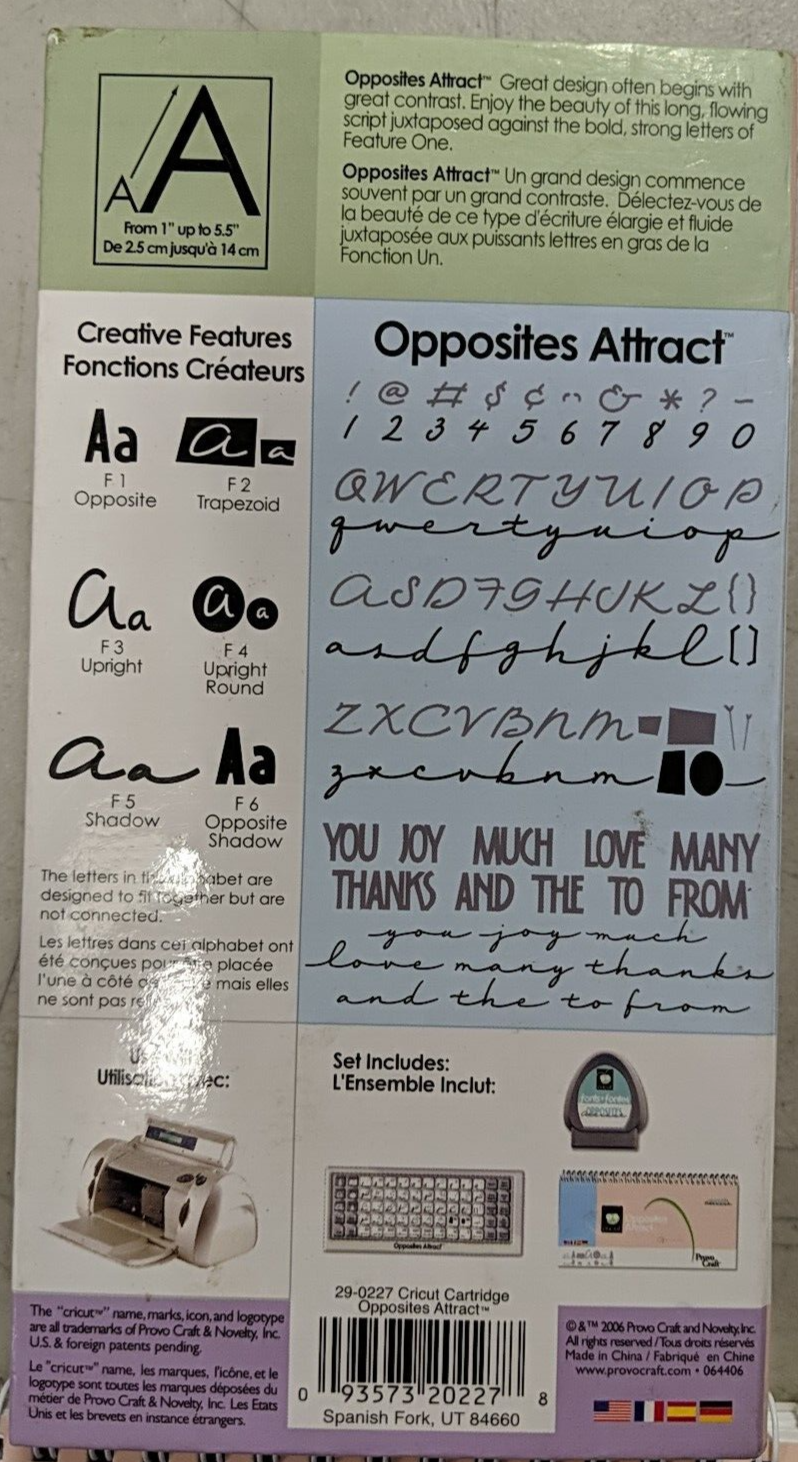 A A
From 1" up to 5.5"
De 2.5 cm jusqu'à 14 cm
Opposites Attract™ Great design often begins with
great contrast. Enjoy the beauty of this long, flowing
script juxtaposed against the bold, strong letters of
Feature One.
Opposites Attract™ Un grand design commence
souvent par un grand contraste. Délectez-vous de
la beauté de ce type d'écriture élargie et fluide
juxtaposée aux puissants lettres en gras de la
Fonction Un.
Creative Features
Fonctions Créateurs
Aa
F 1
Opposite
a a
F 2
Trapezoid
Aa
F 3
Upright
a a
F 4
Upright
Round
aa
F 5
Shadow
Aa
F 6
Opposite
Shadow
The letters in alphabet are
designed to fit together but are
not connected.
Les lettres dans cet alphabet ont
été conçues pour placée
l'une à côté mais elles
ne sont pas
Opposites Attract™
! @ # $ ¢ & * ? -
1 2 3 4 5 6 7 8 9 0
QWERTYUIOP
qwertyuiop
ASDFGHJKL{}
asdfghjkl[]
ZXCVBNM
zxcvbnm
YOU JOY MUCH LOVE MANY
THANKS AND THE TO FROM
you joy much
love many thanks
and the to from
Utilisa
Set Includes:
L'Ensemble Inclut:
fonts•fontes
OPPOSITES
Opposites Attract
Provo
Craft
29-0227 Cricut Cartridge
Opposites Attract™
0 93573 20227 8
Spanish Fork, UT 84660
The "cricut™" name, marks, icon, and logotype
are all trademarks of Provo Craft & Novelty, Inc.
U.S. & foreign patents pending.
Le "cricut™" name, les marques, l'icône, et le
logotype sont toutes les marques déposées du
métier de Provo Craft & Novelty, Inc. Les Etats
Unis et les brevets en instance étrangers.
© & ™ 2006 Provo Craft and Novelty, Inc.
All rights reserved / Tous droits réservés
Made in China / Fabriqué en Chine
www.provocraft.com • 064406